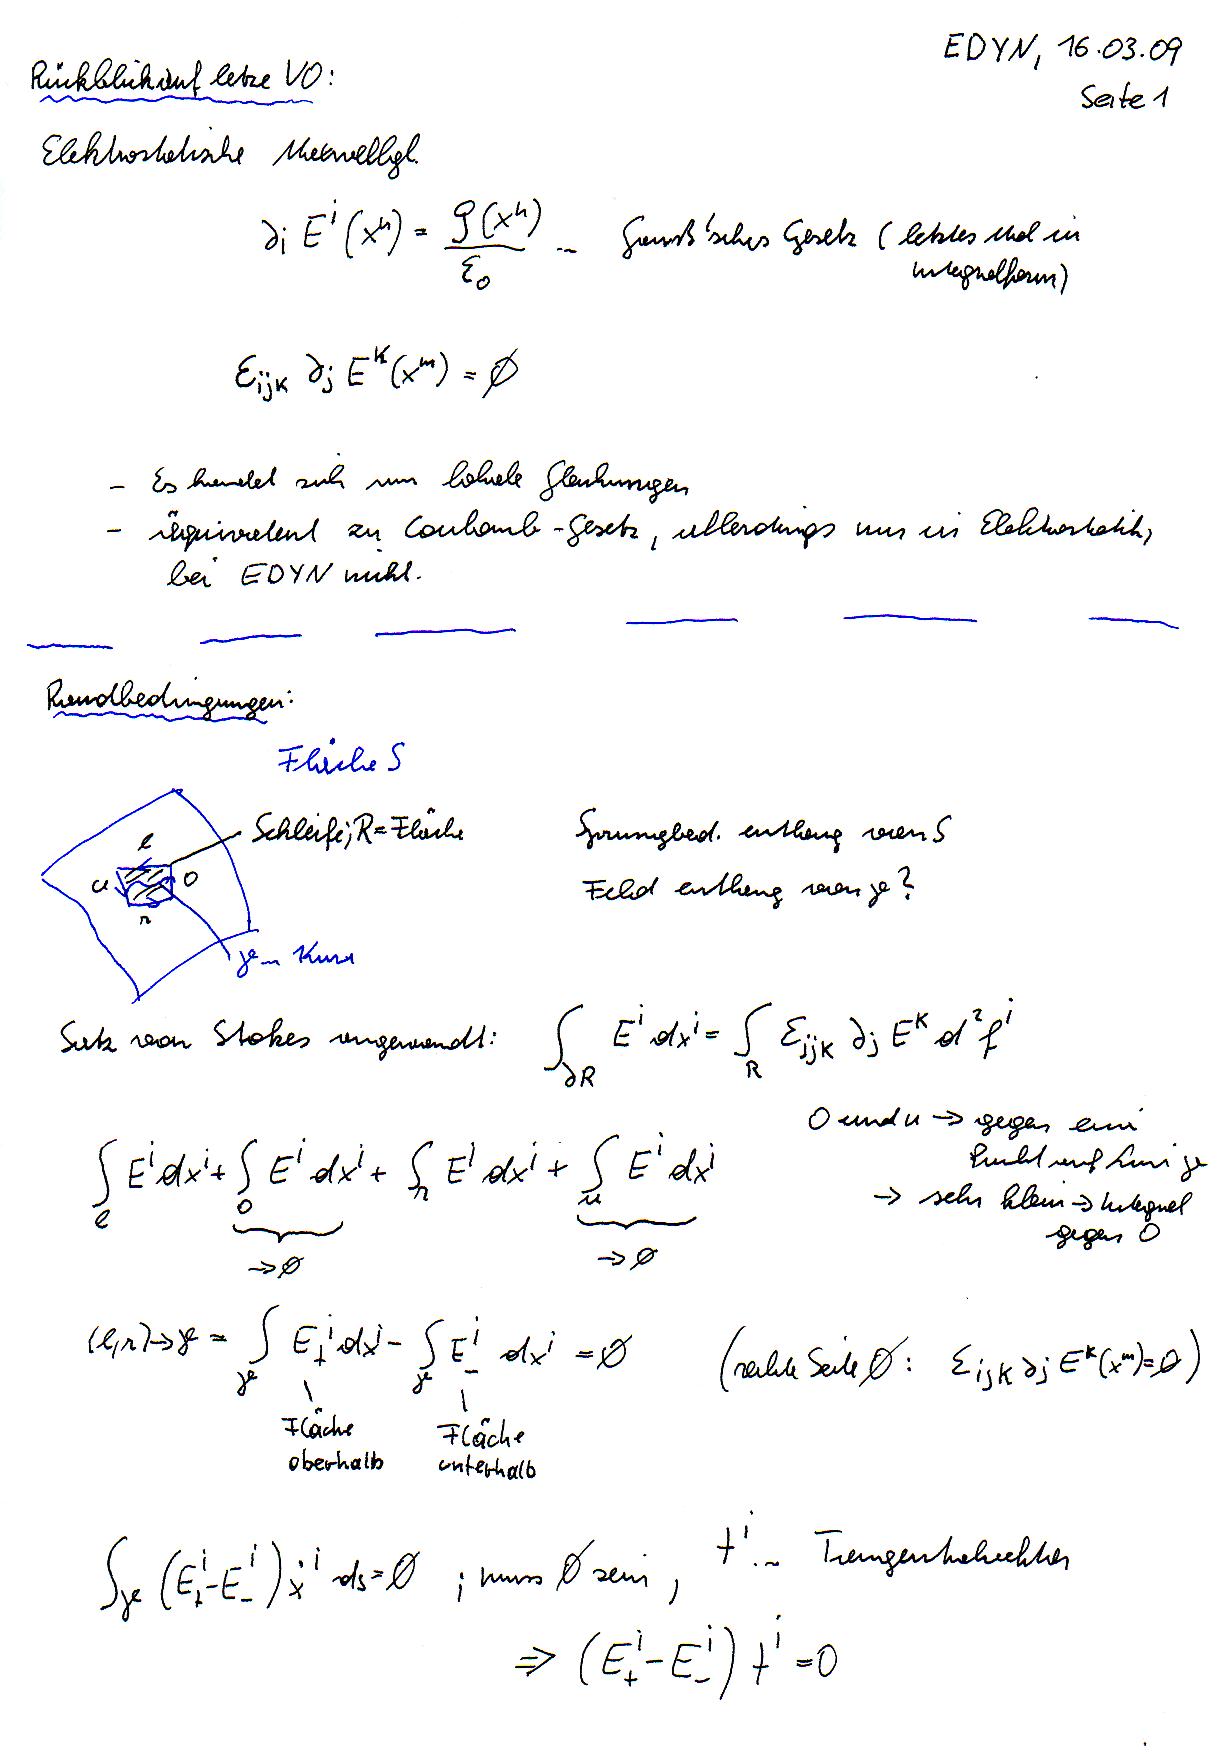 EDYN, 16.03.09
Seite 1
Rückblick auf letze VO:
Elektrostatische Maxwellgl.
∂i E^i (x^k) = ρ(x^k) / ε0 … Gauß'sches Gesetz (letztes Mal in
Integralform)
εijk ∂j E^k (x^m) = ∅
- Es handelt sich um lokale Gleichungen
- äquivalent zu Coulomb-Gesetz, allerdings nur in Elektrostatik,
bei EDYN nicht.
Randbedingungen:
Fläche S
Schleife; R=Fläche
l
u
o
r
γ … Kurve
Sprungbed. entlang von S
Feld entlang von γ?
Satz von Stokes angewandt: ∫∂R E^i dx^i = ∫R εijk ∂j E^k d²f^i
∫l E^i dx^i + ∫o E^i dx^i + ∫r E^i dx^i + ∫u E^i dx^i
→∅ →∅
O und u → gegen ein
Punkt auf Kurve γ
→ sehr klein → Integral
gegen 0
(l,r)→γ = ∫γ E+^i dx^i - ∫γ E-^i dx^i = ∅ (rechte Seite ∅: εijk ∂j E^k(x^m)=∅)
Fläche
oberhalb
Fläche
unterhalb
∫γ (E+^i - E-^i) ẋ^i ds = ∅ ; muss ∅ sein, t^i … Tangentialvektor
⇒ (E+^i - E-^i) t^i = 0